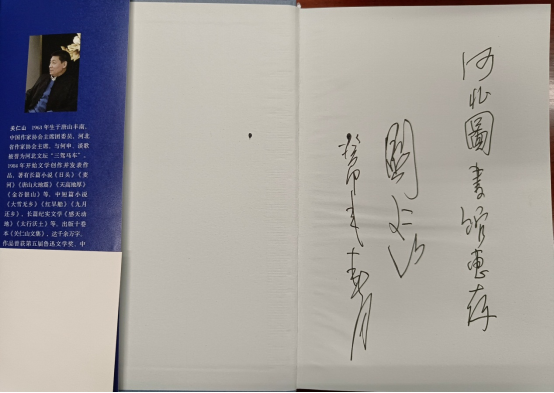 关仁山 1963年生于唐山丰南。
中国作家协会主席团委员，河北
省作家协会主席。与何申、谈歌
被誉为河北文坛“三驾马车”。
1984年开始文学创作并发表作
品。著有长篇小说《日头》《麦
河》《唐山大地震》《天高地厚》
《金谷银山》等，中短篇小说
《大雪无乡》《红旱船》《九月
还乡》，长篇纪实文学《感天动
地》《太行沃土》等，出版十卷
本《关仁山文集》，达千余万字。
作品曾获第五届鲁迅文学奖、中
河北圖書館惠存
關仁山
癸卯年